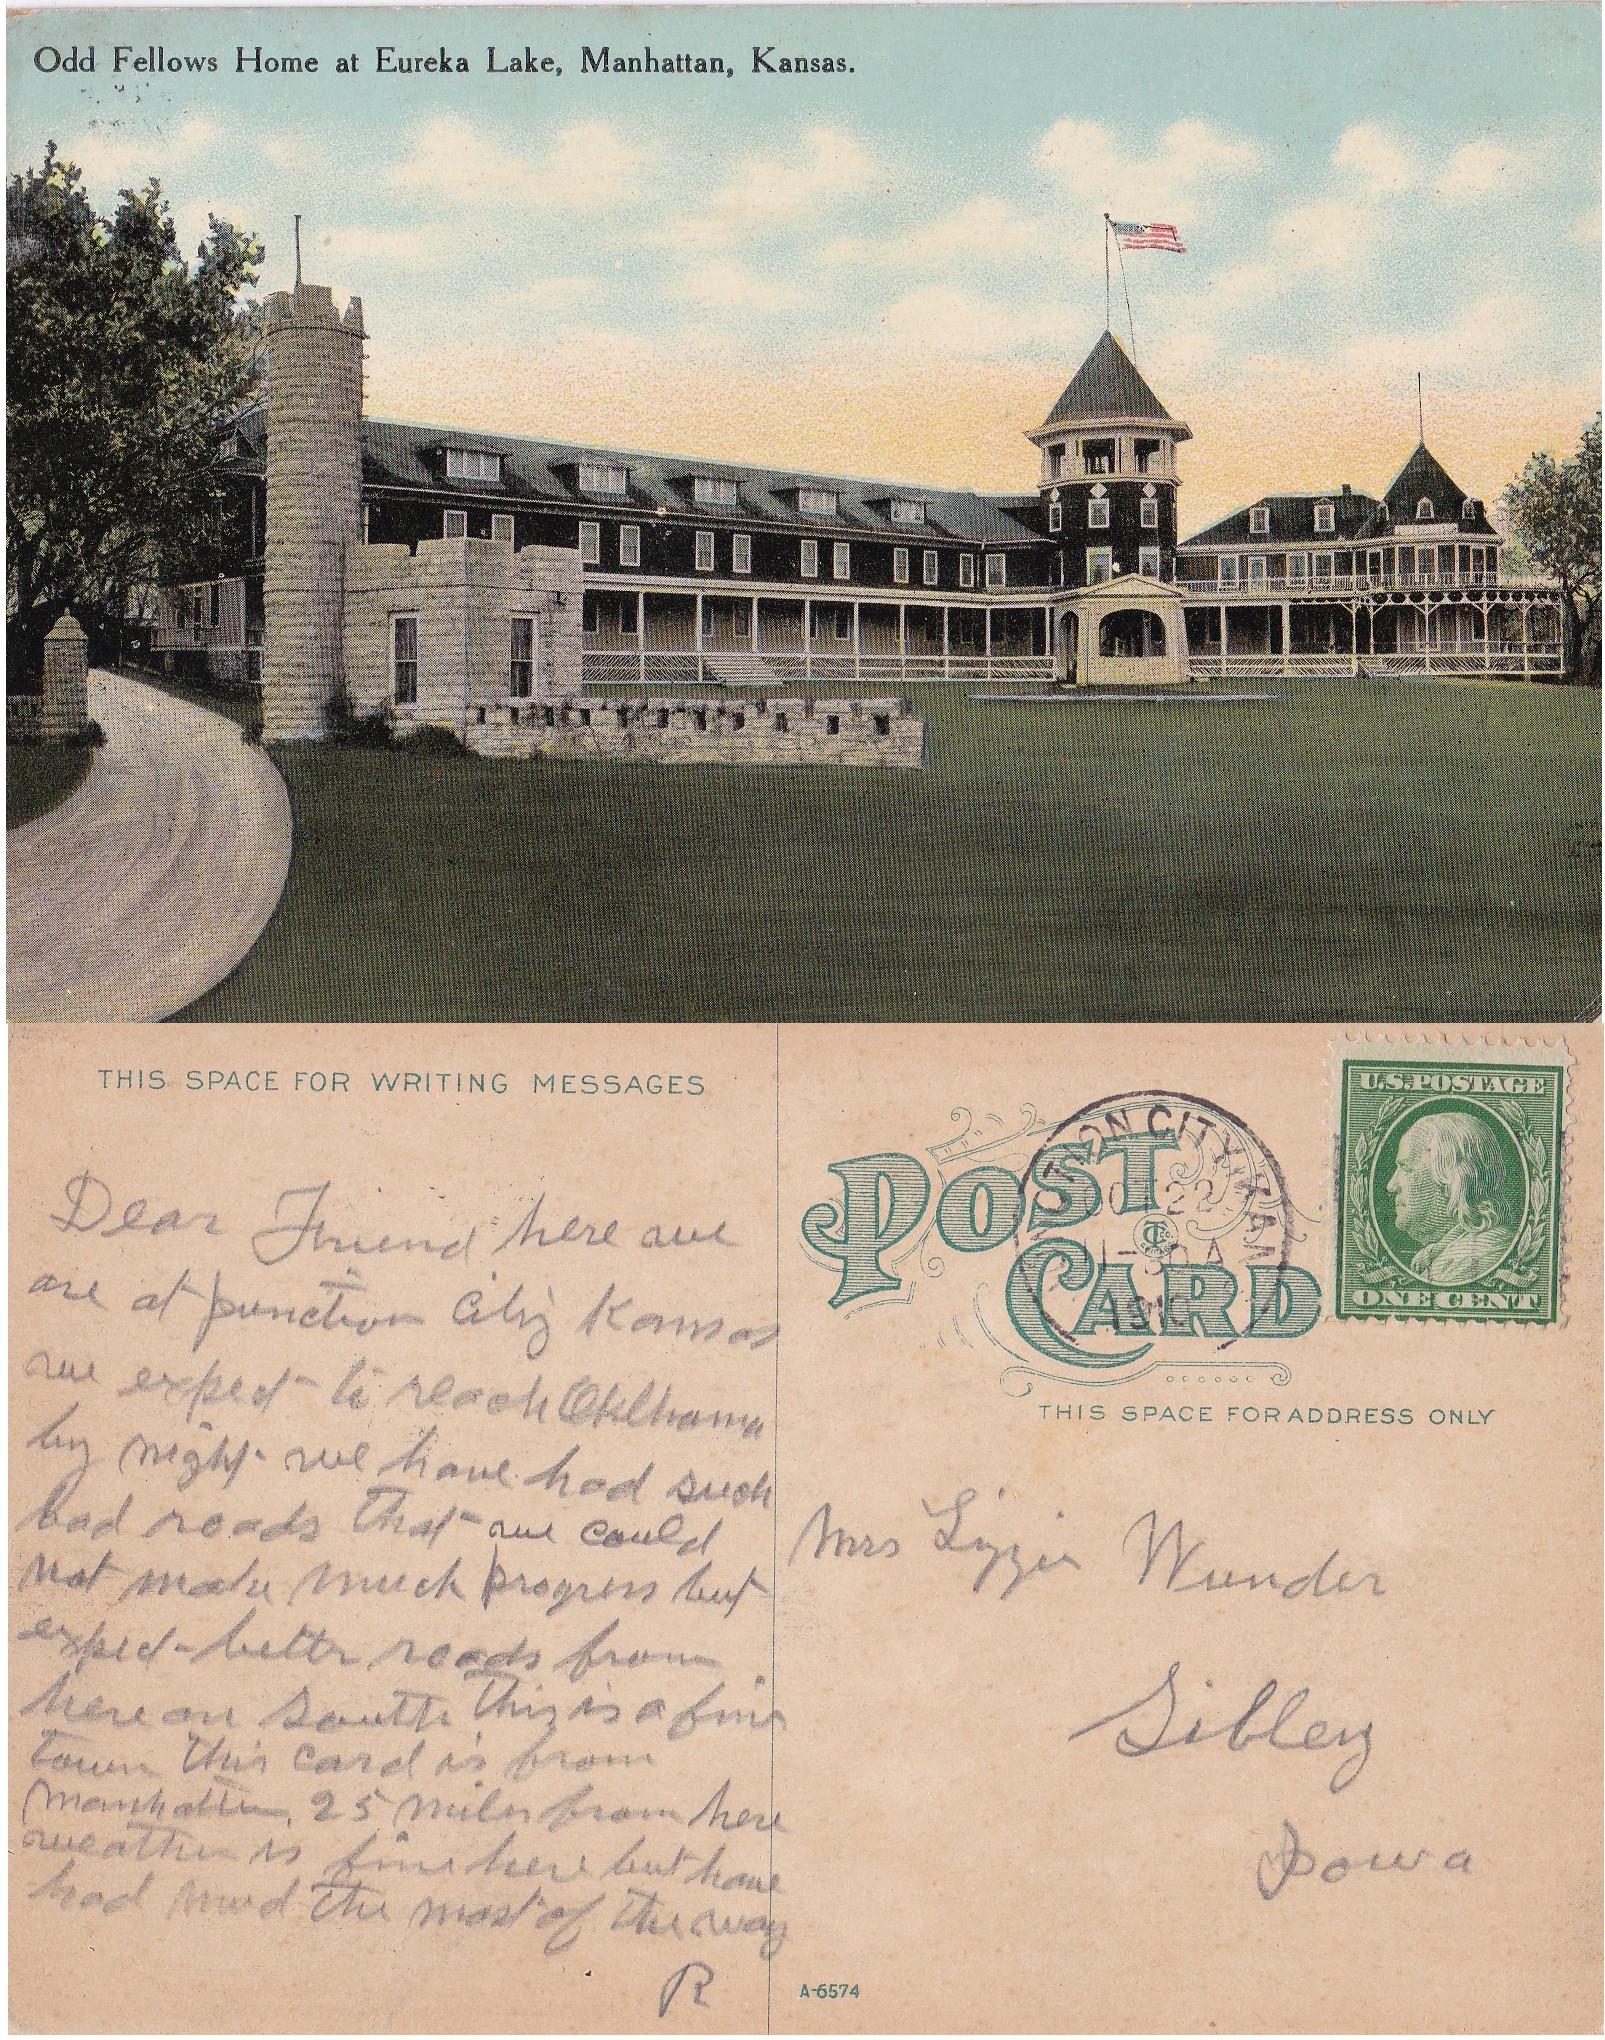 Odd Fellows Home at Eureka Lake, Manhattan, Kansas.
THIS SPACE FOR WRITING MESSAGES
Dear Friend here we
are at Junction City Kansas
we expect to reach Oklhama
by night we have had such
bad roads that we could
not make much progress but
expect better roads from
here on South This is a fine
town This card is from
Manhattan 25 miles from here
weather is fine here but have
had mud the most of the way
R
POST CARD
CITY
22
1910
U.S. POSTAGE
ONE CENT
THIS SPACE FOR ADDRESS ONLY
Mrs Lizzie Wunder
Sibley
Iowa
A-6574